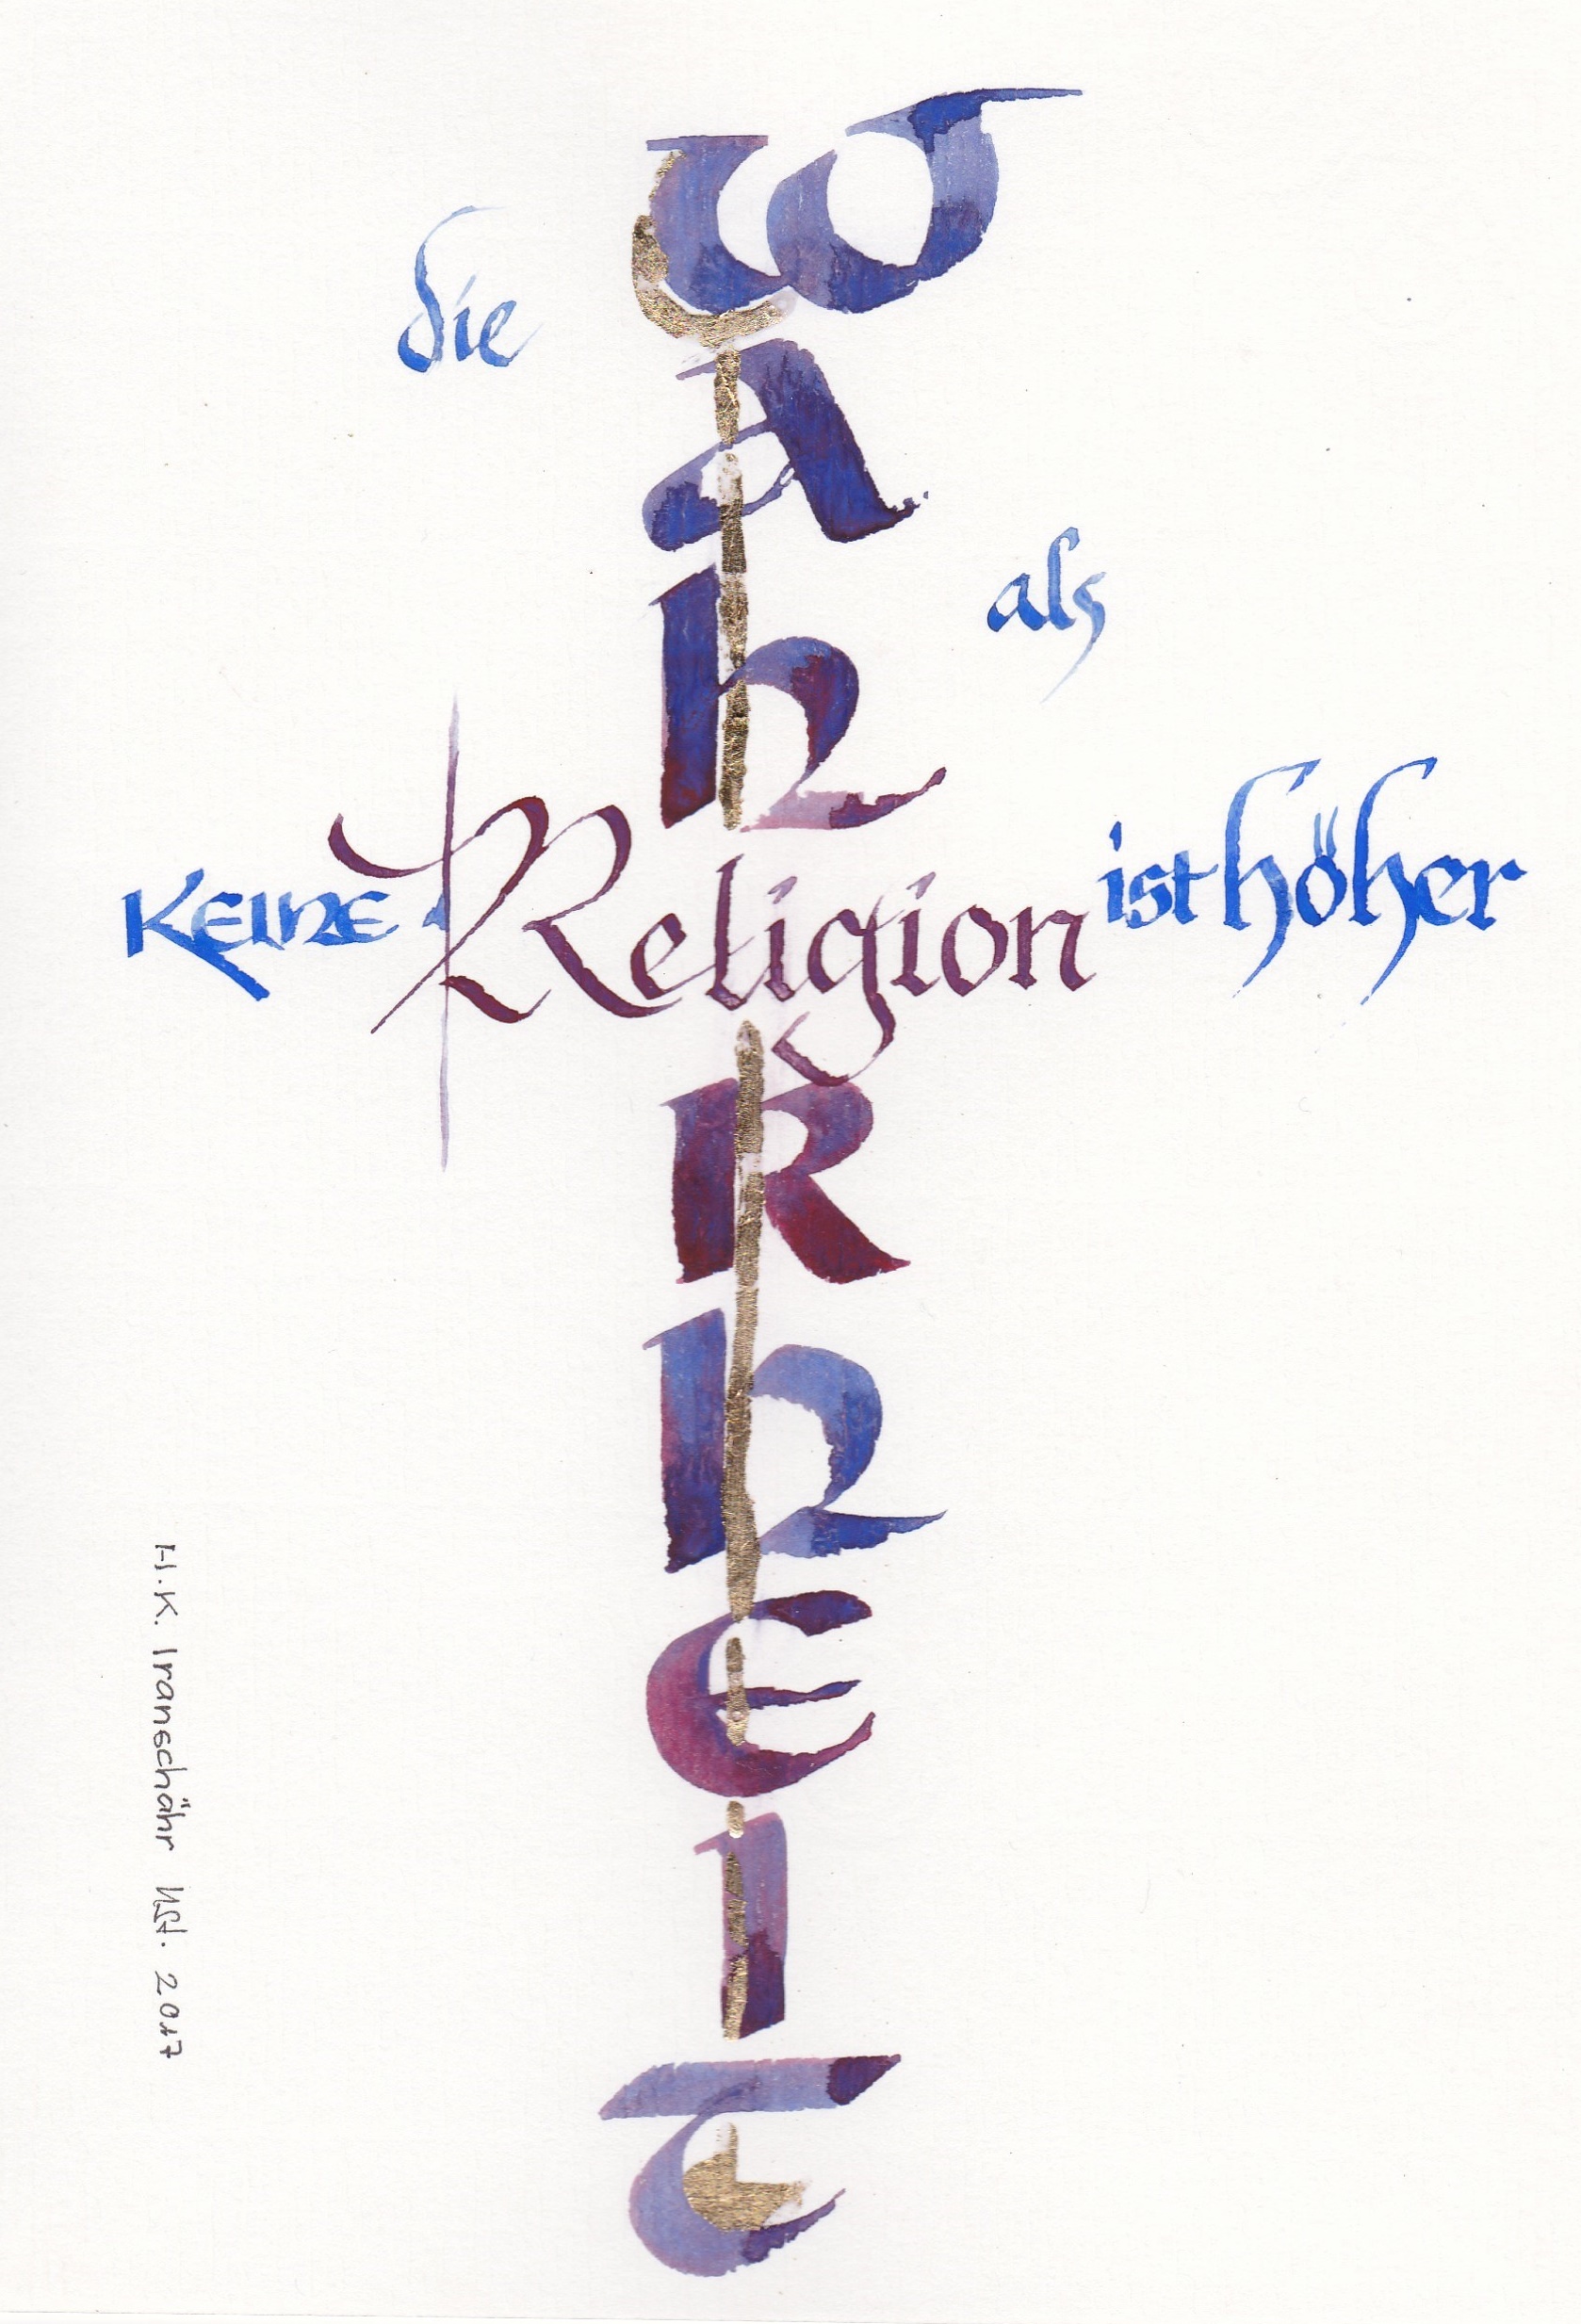 KEINE Religion ist höher
als
die
WAhRhEIT
H. K. Iranschähr 2017